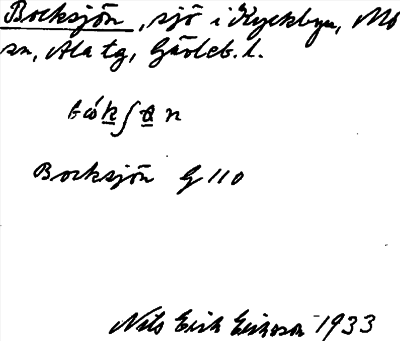 Bocksjön, sjö i Kyckbyn, Mo
sn, Ala tg, Gävleb. l.
Bocksjön G 110
Nils Erik Eriksson 1933